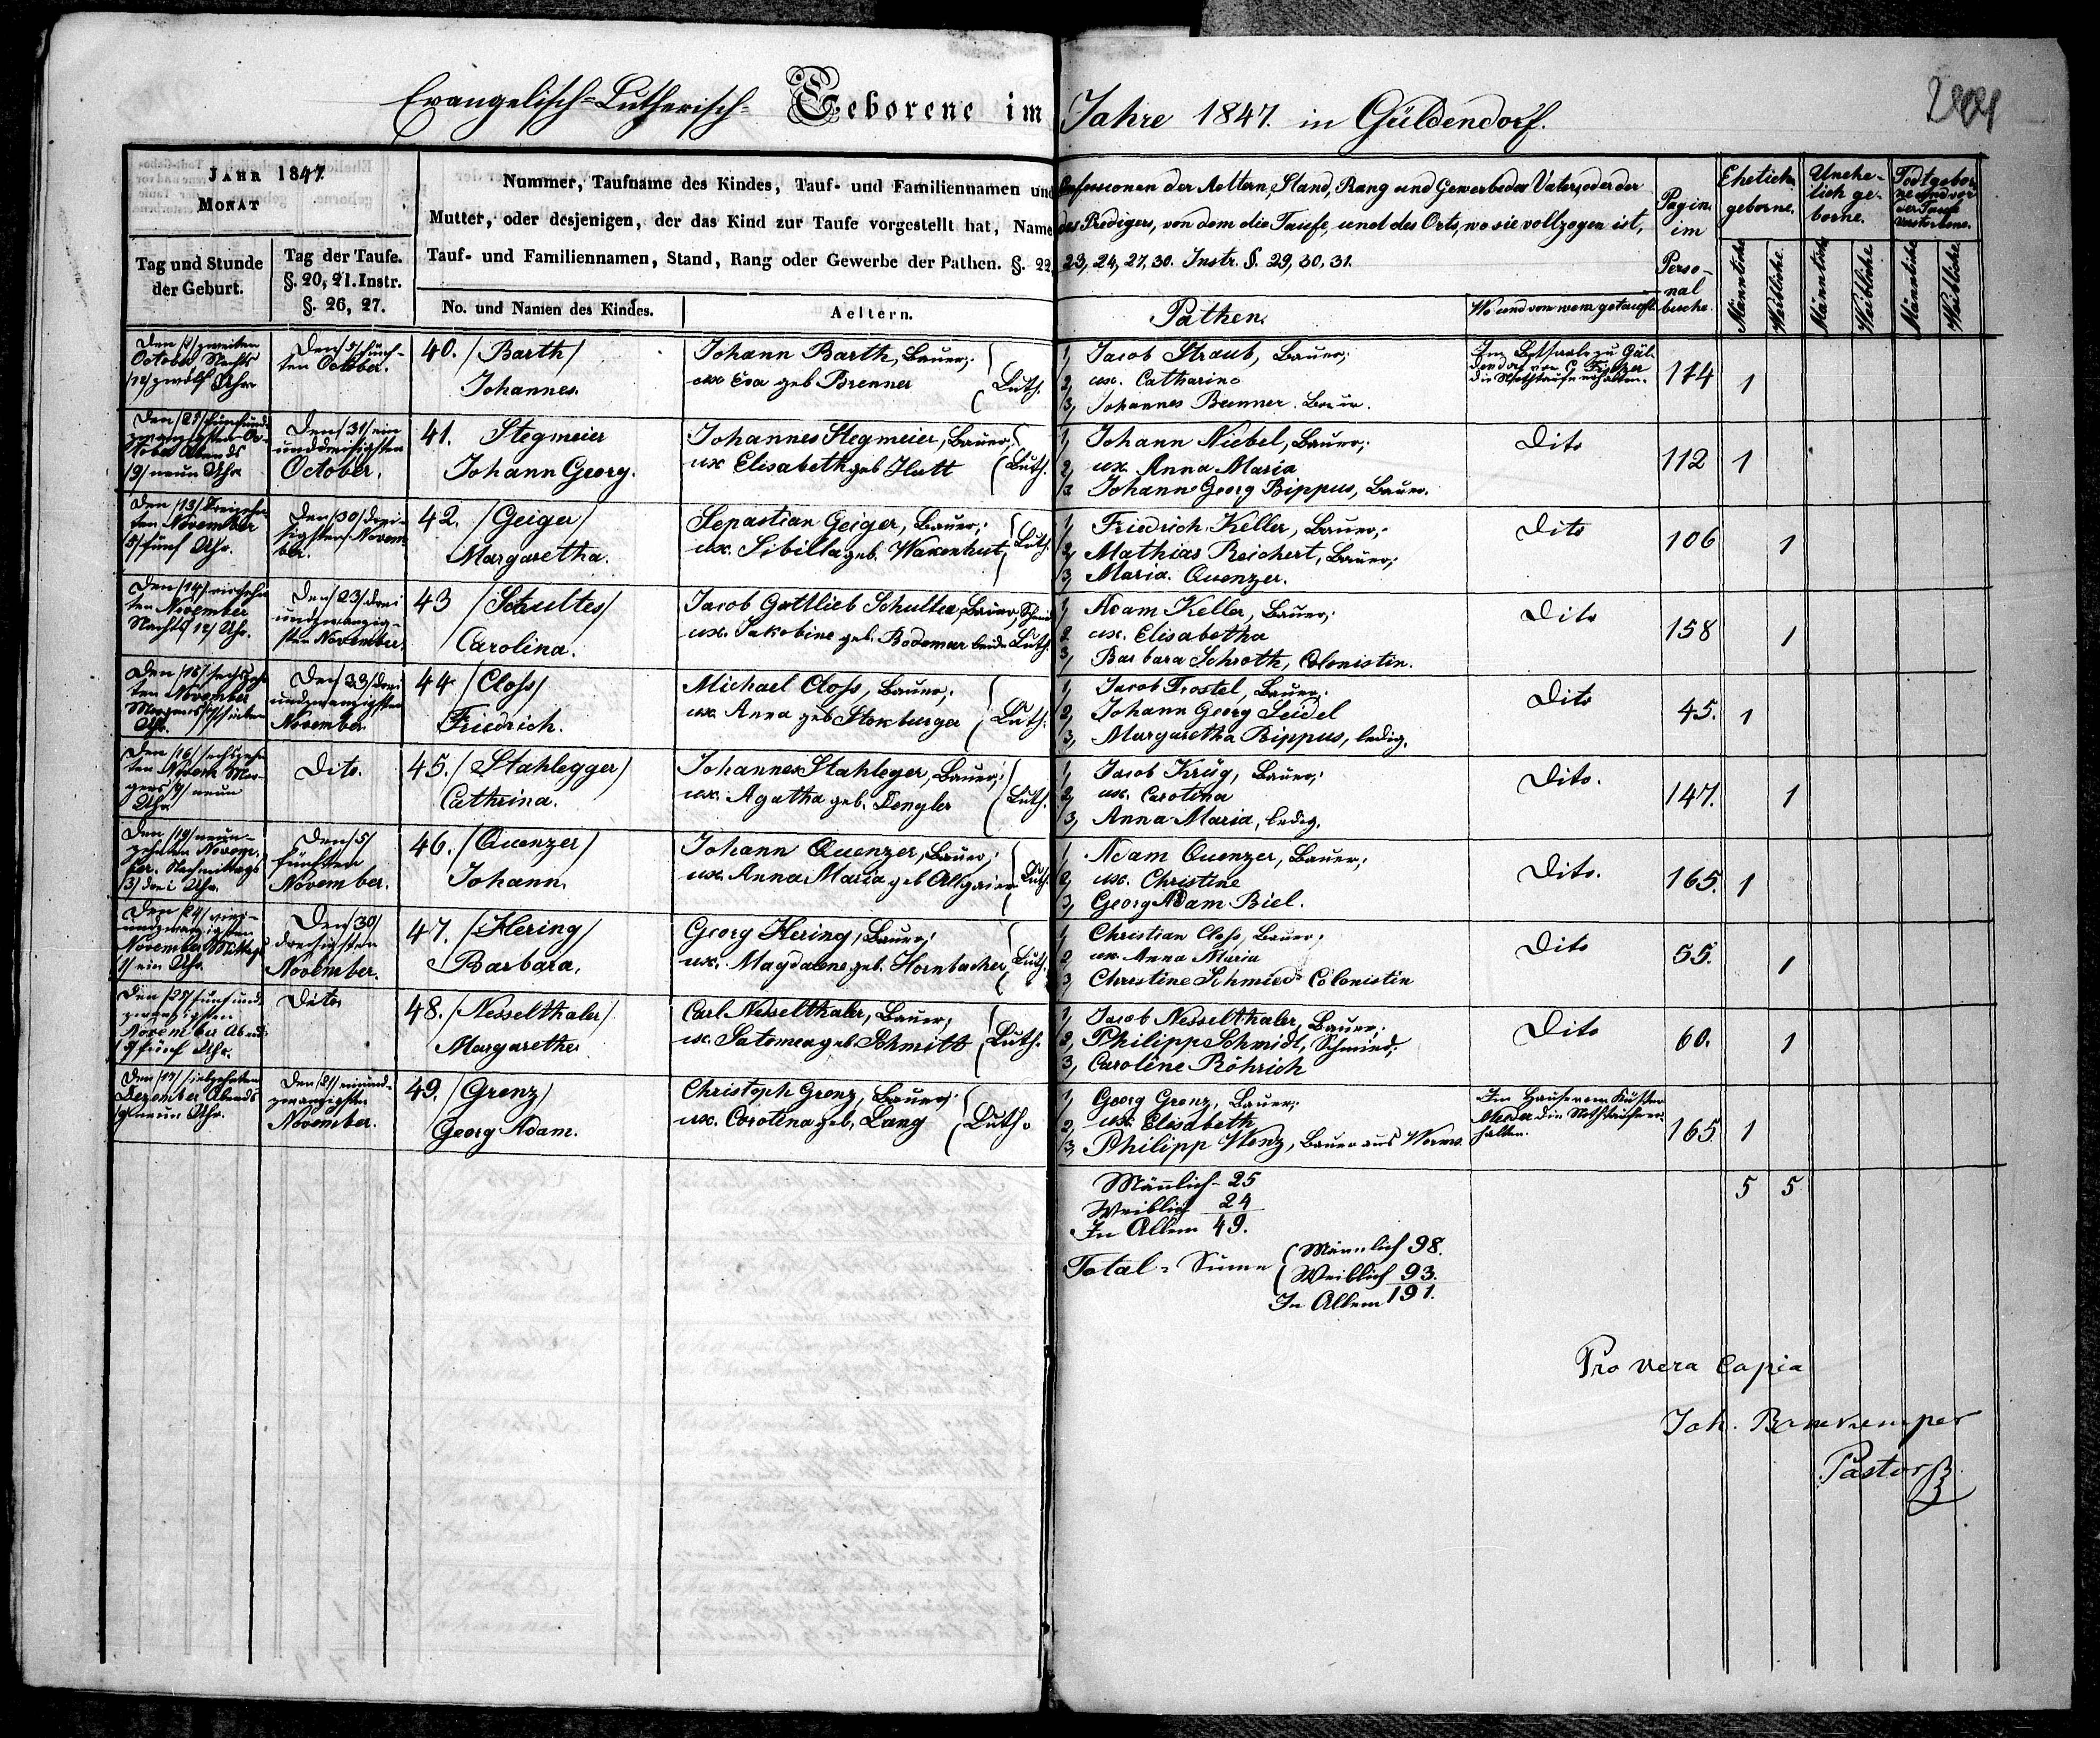 Evangelisch-Lutherisch- Geborene im Jahre 1847. in Güldendorf.
JAHR 1847
MONAT
Tag und Stunde
der Geburt.
Tag der Taufe.
§. 20, 21. Instr.
§. 26, 27.
Nummer, Taufname des Kindes, Tauf- und Familiennamen und Confessionen der Aeltern, Stand, Rang und Gewerbe des Vaters, oder der
Mutter, oder desjenigen, der das Kind zur Taufe vorgestellt hat, Name des Predigers, von dem die Taufe, und des Orts, wo sie vollzogen ist,
Tauf- und Familiennamen, Stand, Rang oder Gewerbe der Pathen. §. 22, 23, 24, 27, 30. Instr. §. 29, 30, 31.
No. und Namen des Kindes.
Aeltern.
Pathen.
Wo und von wem getauft.
Pagin.
im
Perso-
nal
buche.
Ehelich
geborne.
Unehe-
lich ge-
borne.
Todtgebor
ne und vor
der Taufe
verstorbene.
Männliche
Weibliche
Männliche
Weibliche
Männliche
Weibliche
Den /2/ zweiten
October Nachts
/12/ zwölf Uhr
Den /5/ fünf-
ten October.
40. /Barth/
Johannes.
Johann Barth, Bauer,
ux Eva geb Brenner
Luth.
1, Jacob Straub, Bauer,
2, ux. Catharine
3, Johannes Brenner. Bauer.
Im Betsaale zu Gül-
dendorf von C
die Nothtaufe erhalten.
174
1
Den /25/ fünfund-
zwanzigsten Oc-
tober Abends
/9/ neun Uhr
Den /31/ ein
unddreißigsten
October.
41. Stegmeier
Johann Georg.
Johannes Stegmeier, Bauer,
ux Elisabeth geb Hutt
Luth.
1, Johann Niebel, Bauer,
2, ux. Anna Maria
3 Johann Georg Bippus, Bauer.
Dito
112
1
Den /13/ dreizehn
ten November
/5/ fünf Uhr.
Den /30/ drei-
sigsten Novem
ber.
42. /Geiger/
Margaretha.
Sepastian Geiger, Bauer,
ux. Sibilla geb. Wakenhut,
Luth.
1, Friedrich Keller, Bauer,
2, Mathias Reichert, Bauer,
3, Maria Quenzer.
Dito
106
1
Den /14/ vierzehn
ten November
Nachts 12/ Uhr.
Den /23/ drei
undzwanzig-
sten November.
43 /Schultes/
Carolina.
Jacob Gottlieb Schultes, Bauer,
ux. Jakobine geb. Bodemar beide Luth.
1, Adam Keller, Bauer,
2 ux. Elisabetha
3, Barbara Schroth, Colonistin.
Dito
158
1
ten November
Uhr.
Den /23/ drei
undzwanzigsten
November.
44. /Closs/
Friedrich.
Michael Closs, Bauer,
ux. Anna geb Stokburger
Luth.
1, Jacob Trostel, Bauer,
2, Johann Georg Seidel
3, Margaretha Bippus, ledig.
Dito
45.
1
Den /16/ sechzehn
ten Novem. Mor-
gens /9/ neun
Uhr
Dito.
45. /Stahlegger/
Cathrina.
Johannes Stahleger, Bauer,
ux. Agatha geb. Dengler
Luth.
1, Jacob Krüg, Bauer,
2, ux. Carolina
3, Anna Maria, ledig.
Dito.
147.
1
Den /19/ neun-
zehnten Novem-
ber. Nachmittags
/3/ drei Uhr.
Den /5/
fünften
November.
46. /Quenzer/
Johann.
Johann Quenzer, Bauer,
ux. Anna Maria geb Allgaier
Luth.
1, Adam Quenzer, Bauer,
2, ux. Christine
3, Georg Adam Biel.
Dito.
165.
1
Den /24/ vier-
undzwanzigsten
November Mittags
/1/ ein Uhr.
Den /30/
dreisigsten
November.
47. /Hering/
Barbara.
Georg Hering, Bauer,
ux. Magdalene geb. Hornbacher,
Luth.
1, Christian Closs, Bauer,
2, ux. Anna Maria
3, Christine Schmied Colonistin
Dito
55.
1
Den /25/ fünfund-
zwanzigsten
November Abends
fünf Uhr.
Dito.
48. /Nesselthaler/
Margaretha
Carl Nesselthaler, Bauer,
ux. Salomea geb. Schmitt
Luth.
1, Jacob Nesselthaler, Bauer,
2, Philipp Schmidt, Schmied,
3, Caroline Röhrich
Dito
60.
1
Den /17/ siebzehnten
Dezember Abends
/9/ neun Uhr.
Den /21/ einund-
zwanzigsten
November.
49. /Grenz/
Georg Adam.
Christoph Grenz, Bauer,
ux. Carolina geb. Lang
Luth.
1, Georg Grenz, Bauer,
2, ux. Elisabeth
3, Philipp Wenz, Bauer aus Worms.
Im Hause vom Küster
die Nothtaufe er-
halten.
165
1
Männlich - 25
Weiblich 24
In Allem 49.
5 5
Total-Summe
Männlich 98.
Weiblich 93.
In Allem 191.
Pro vera Copia
Joh. Bonekemper
Pastor